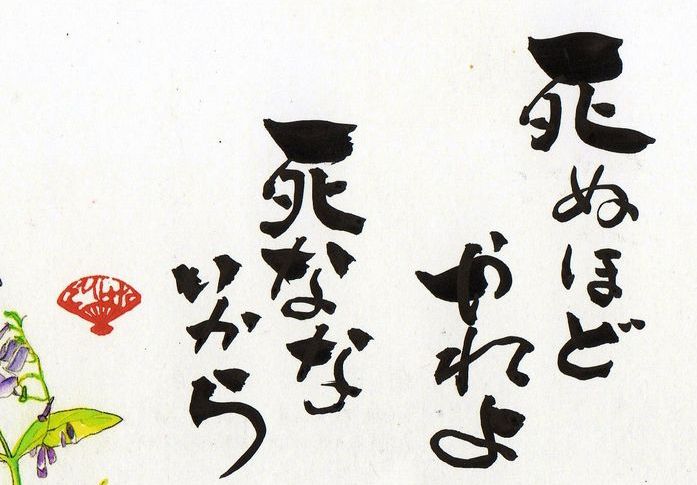 死ぬほど
やれよ
死なな
いから